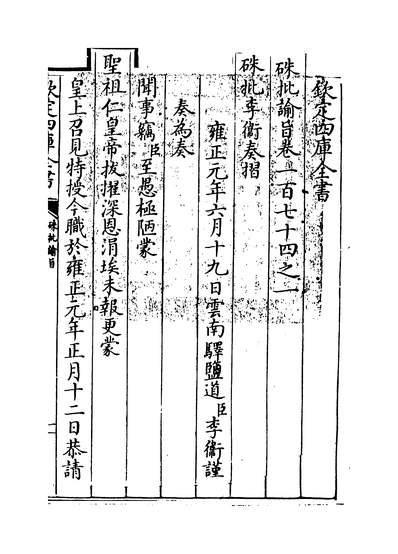 欽定四庫全書
硃批諭旨卷一百七十四之一
硃批李衛奏摺
雍正元年六月十九日雲南驛鹽道臣李衛謹
奏為奏
聞事竊臣至愚極陋蒙
聖祖仁皇帝拔擢深恩涓埃未報更蒙
皇上召見特授今職於雍正元年正月十二日恭請
欽定四庫全書
硃批諭旨
一